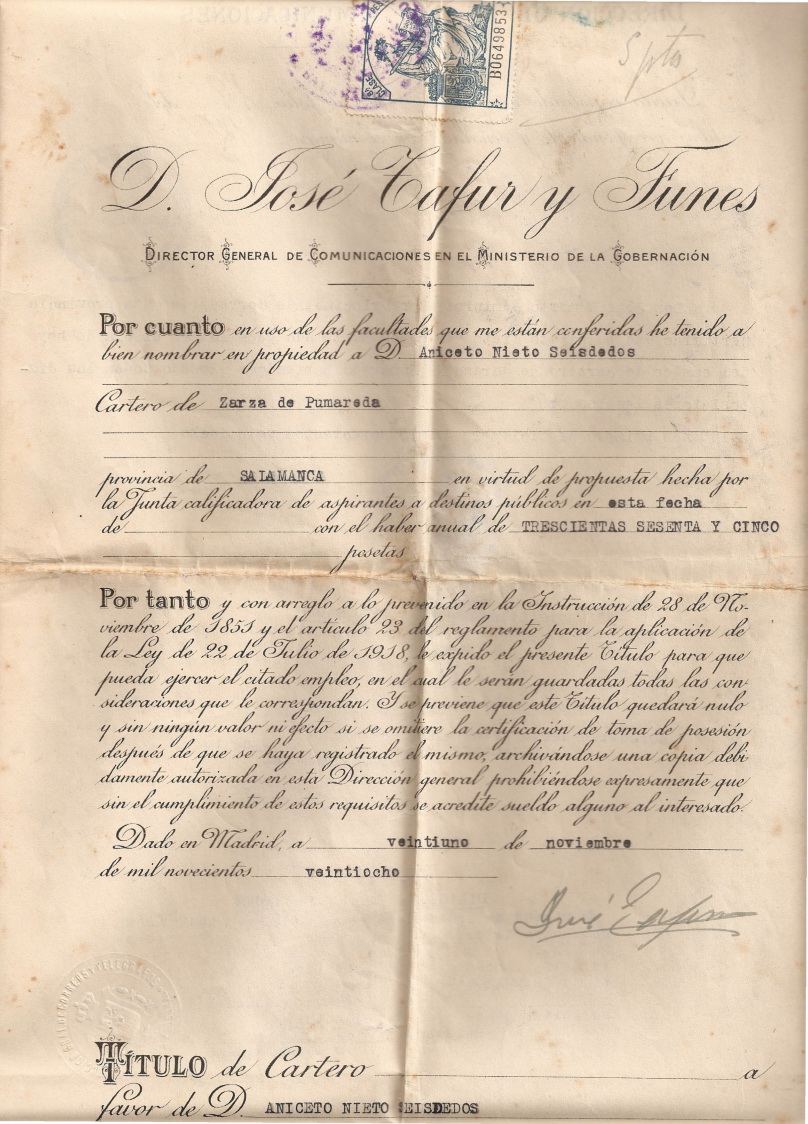 B0649853
CLASE 8ª
5 ptas
D. José Tafur y Funes
DIRECTOR GENERAL DE COMUNICACIONES EN EL MINISTERIO DE LA GOBERNACIÓN
Por cuanto en uso de las facultades que me están conferidas he tenido a
bien nombrar en propiedad a D. Aniceto Nieto Seisdedos
Cartero de Zarza de Pumareda
provincia de SALAMANCA en virtud de propuesta hecha por
la Junta calificadora de aspirantes a destinos públicos en esta fecha
de con el haber anual de TRESCIENTAS SESENTA Y CINCO
pesetas
Por tanto y con arreglo a lo prevenido en la Instrucción de 28 de No-
viembre de 1851 y el artículo 23 del reglamento para la aplicación de
la Ley de 22 de Julio de 1918, le expido el presente Título para que
pueda ejercer el citado empleo, en el cual le serán guardadas todas las con-
sideraciones que le correspondan. Y se previene que este Título quedará nulo
y sin ningún valor ni efecto si se omitiere la certificación de toma de posesión
después de que se haya registrado el mismo, archivándose una copia debi-
damente autorizada en esta Dirección general prohibiéndose expresamente que
sin el cumplimiento de estos requisitos se acredite sueldo alguno al interesado.
Dado en Madrid, a veintiuno de noviembre
de mil novecientos veintiocho
José Tafur
TÍTULO de Cartero a
favor de D. ANICETO NIETO SEISDEDOS